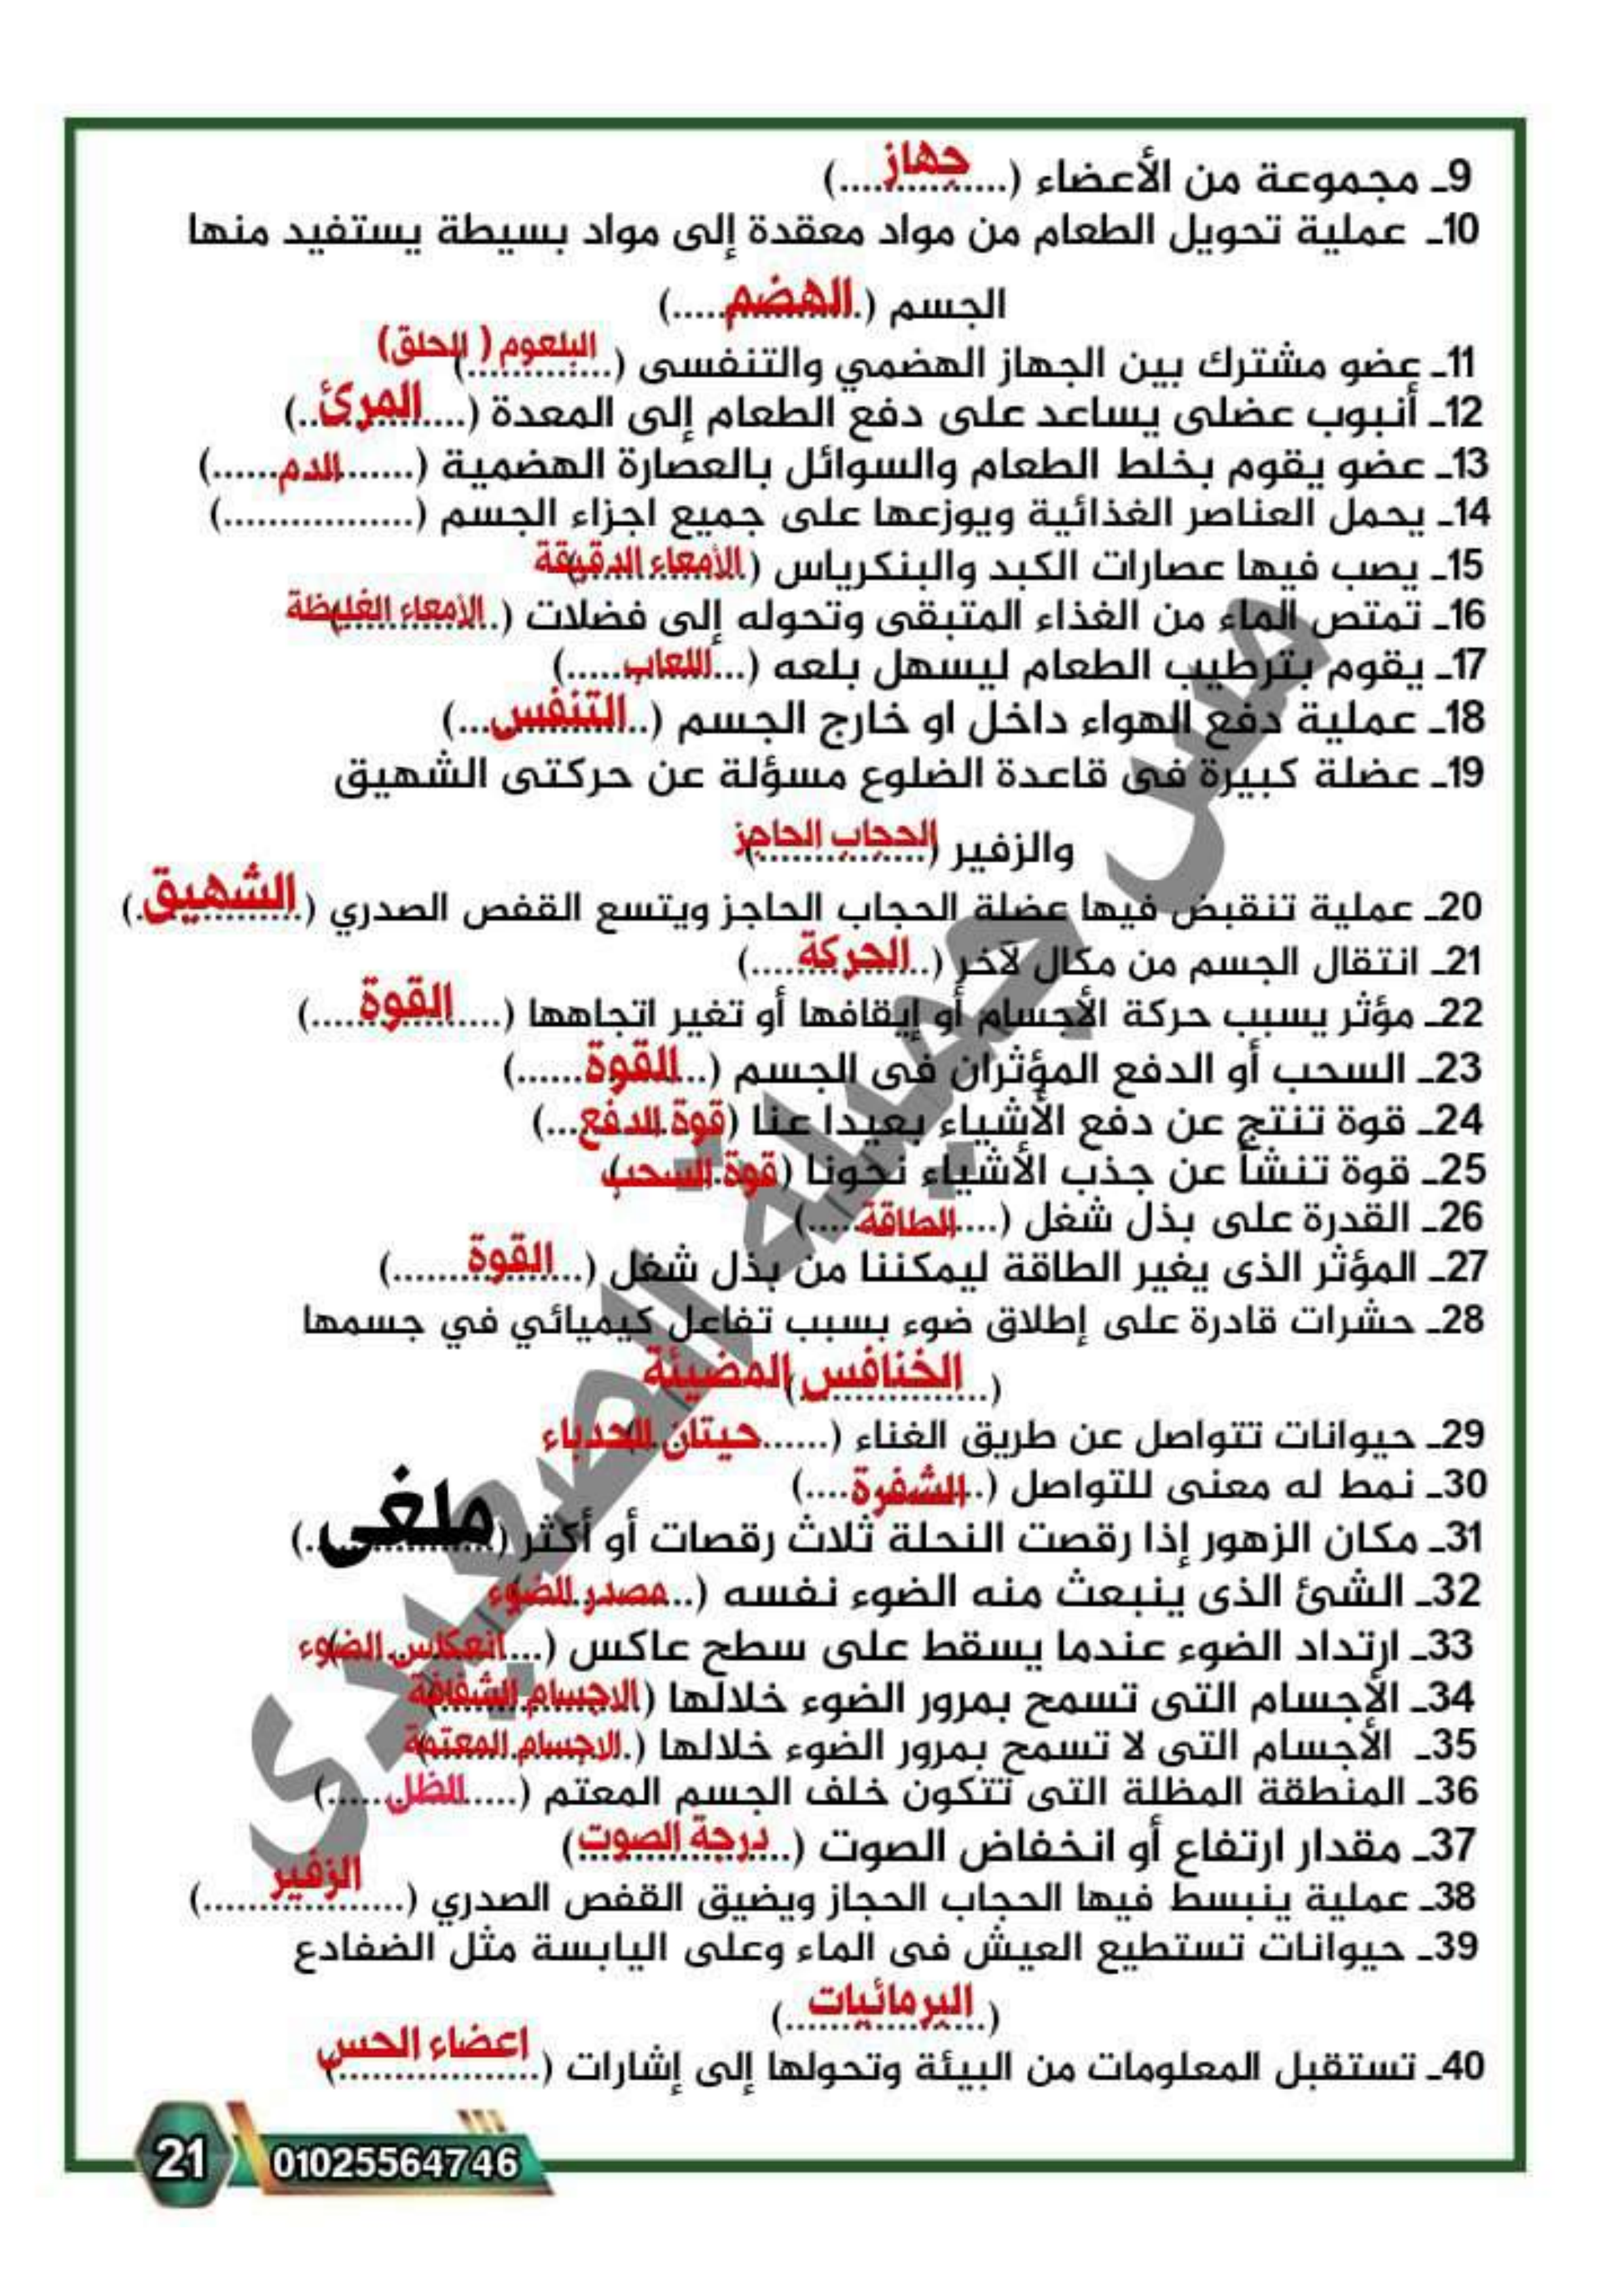 9ـ مجموعة من الأعضاء (......جهاز......)
10ـ عملية تحويل الطعام من مواد معقدة إلى مواد بسيطة يستفيد منها
الجسم (.الهضم.....)
11ـ عضو مشترك بين الجهاز الهضمي والتنفسى (.............) البلعوم ( الحلق)
12ـ أنبوب عضلى يساعد على دفع الطعام إلى المعدة (....المرئ..)
13ـ عضو يقوم بخلط الطعام والسوائل بالعصارة الهضمية (.......الدم......)
14ـ يحمل العناصر الغذائية ويوزعها على جميع اجزاء الجسم (.................)
15ـ يصب فيها عصارات الكبد والبنكرياس (.الأمعاء الدقيقة)
16ـ تمتص الماء من الغذاء المتبقى وتحوله إلى فضلات (.الأمعاء الغليظة)
17ـ يقوم بترطيب الطعام ليسهل بلعه (...اللعاب.....)
18ـ عملية دفع الهواء داخل او خارج الجسم (..التنفس...)
19ـ عضلة كبيرة فى قاعدة الضلوع مسؤلة عن حركتى الشهيق
والزفير (الحجاب الحاجز)
20ـ عملية تنقبض فيها عضلة الحجاب الحاجز ويتسع القفص الصدري (.الشهيق.)
21ـ انتقال الجسم من مكال لآخر (..الحركة....)
22ـ مؤثر يسبب حركة الأجسام أو إيقافها أو تغير اتجاهها (....القوة....)
23ـ السحب أو الدفع المؤثران فى الجسم (...القوة......)
24ـ قوة تنتج عن دفع الأشياء بعيدا عنا (قوة الدفع...)
25ـ قوة تنشأ عن جذب الأشياء نحونا (قوة السحب)
26ـ القدرة على بذل شغل (...الطاقة.....)
27ـ المؤثر الذى يغير الطاقة ليمكننا من بذل شغل (..القوة.......)
28ـ حشرات قادرة على إطلاق ضوء بسبب تفاعل كيميائي في جسمها
(..الخنافس المضيئة)
29ـ حيوانات تتواصل عن طريق الغناء (......حيتان الحدباء)
30ـ نمط له معنى للتواصل (.الشفرة....)
31ـ مكان الزهور إذا رقصت النحلة ثلاث رقصات أو أكثر (ملغى.)
32ـ الشئ الذى ينبعث منه الضوء نفسه (..مصدر الضوء)
33ـ ارتداد الضوء عندما يسقط على سطح عاكس (...انعكاس الضوء)
34ـ الأجسام التى تسمح بمرور الضوء خلالها (الاجسام الشفافة)
35ـ الأجسام التى لا تسمح بمرور الضوء خلالها (.الاجسام المعتمة)
36ـ المنطقة المظلة التى تتكون خلف الجسم المعتم (.....الظل.....)
37ـ مقدار ارتفاع أو انخفاض الصوت (..درجة الصوت)
38ـ عملية ينبسط فيها الحجاب الحجاز ويضيق القفص الصدري (....الزفير......)
39ـ حيوانات تستطيع العيش فى الماء وعلى اليابسة مثل الضفادع
(.البرمائيات.)
40ـ تستقبل المعلومات من البيئة وتحولها إلى إشارات (.اعضاء الحس)
مس جميلة الصعيدى
21
01025564746